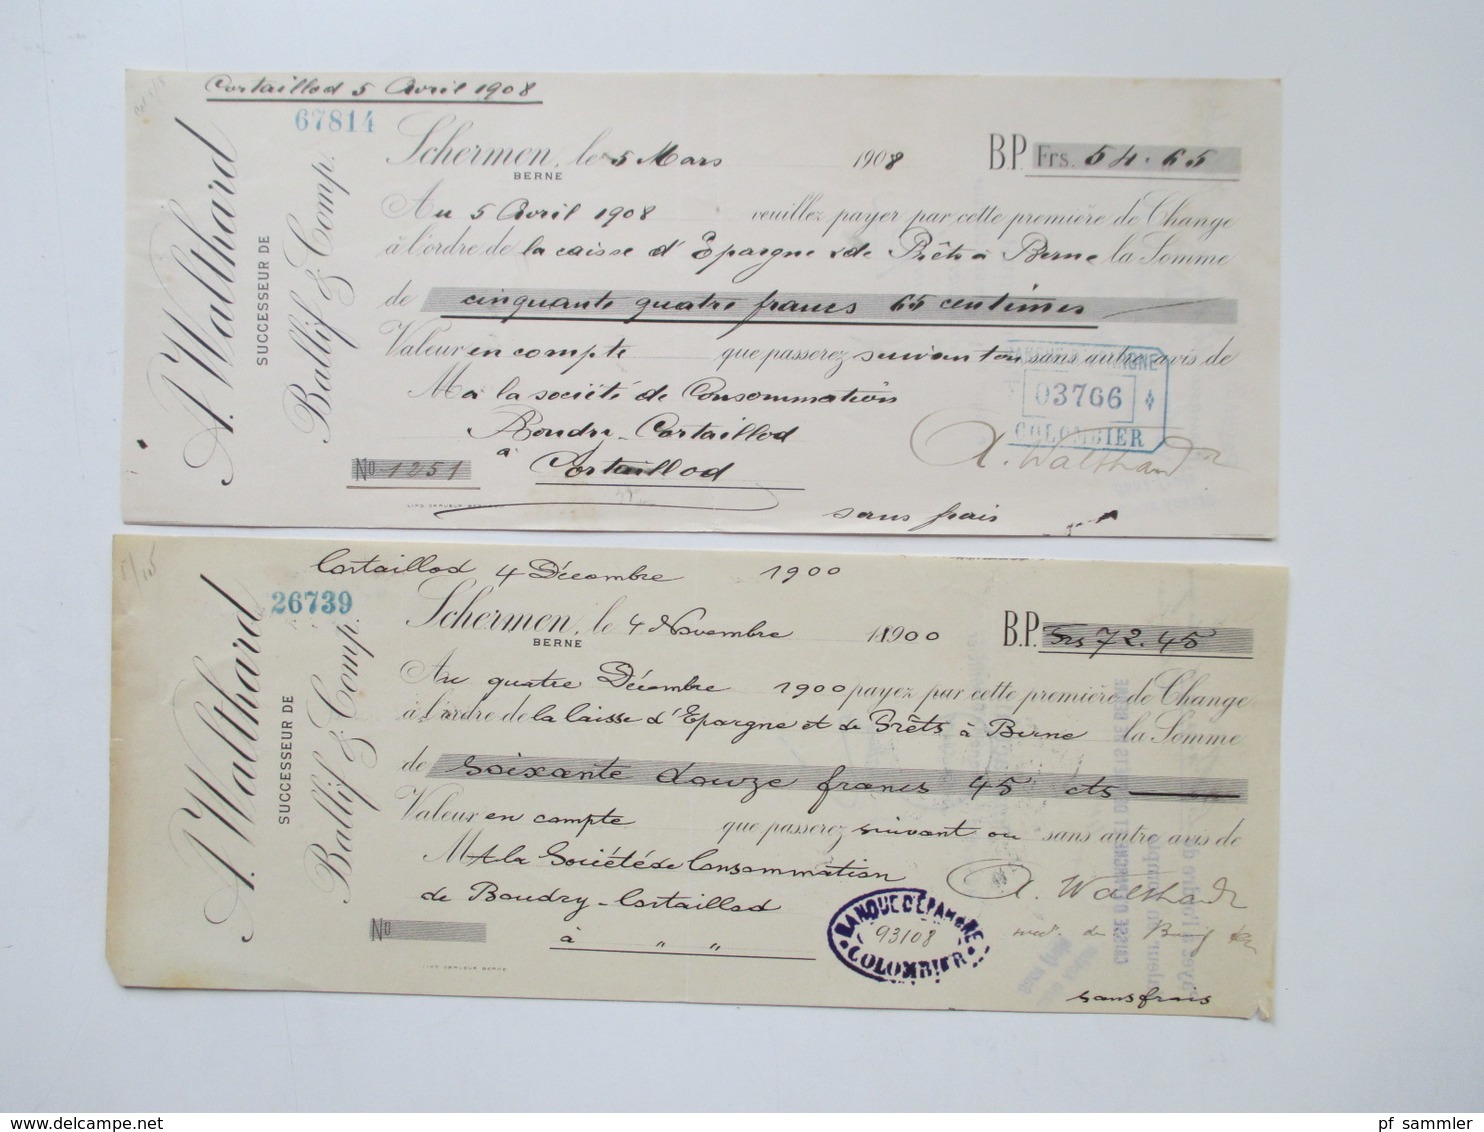 Cortaillod 5 Avril 1908
67814
A. Walthard
SUCCESSEUR DE
Ballif & Comp.
Schermen, le 5 Mars 1908 B.P. Frs. 54.65
BERNE
Au 5 Avril 1908 veuillez payer par cette première de Change
à l'ordre de la caisse d'Epargne & de Prêts à Berne la Somme
de cinquante quatre francs 65 centimes
Valeur en compte que passerez suivant ou sans autre avis de
M à la société de Consommation
Boudry-Cortaillod
à Cortaillod
No 1251
BANQUE D'EPARGNE
03766
COLOMBIER
A. Walthard
sans frais
Cortaillod 4 Décembre 1900
26739
A. Walthard
SUCCESSEUR DE
Ballif & Comp.
Schermen, le 4 Novembre 1900 B.P. Frs 72.45
BERNE
Au quatre Décembre 1900 payez par cette première de Change
à l'ordre de la Caisse d'Epargne et de Prêts à Berne la Somme
de soixante douze francs 45 cts
Valeur en compte que passerez suivant ou sans autre avis de
M A la Société de Consommation
de Boudry-Cortaillod
No
à " "
BANQUE D'EPARGNE
93108
COLOMBIER
A. Walthard
sans frais
pf_sammler